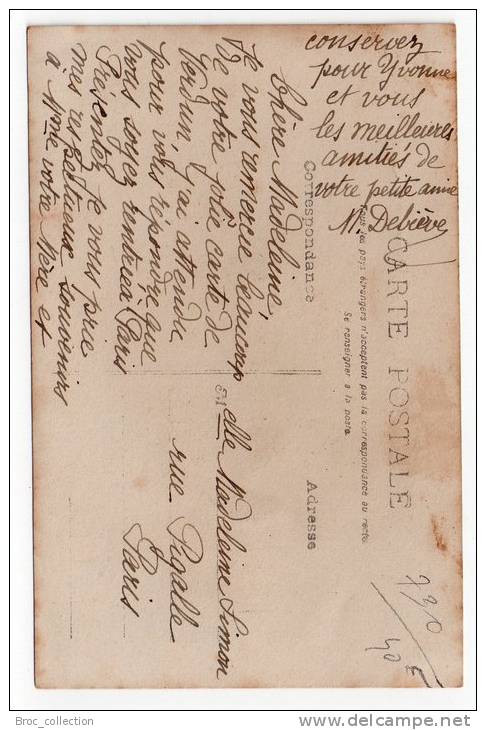 CARTE POSTALE
Tous les pays étrangers n'acceptent pas la correspondance au recto.
Se renseigner à la poste.
Correspondance
Adresse
Chère Madeleine,
Je vous remercie beaucoup
de votre jolie carte de
Verdun, j'ai attendu
pour vous répondre que
vous soyez rentrée à Paris
Présentez, je vous prie
mes respectueux souvenirs
à Mme votre Mère et
conservez
pour Yvonne
et vous
les meilleures
amitiés de
votre petite amie
M. Debièvre
Melle Madeleine Simon
rue Pigalle
Paris
730
40 E
Broc_collection
http://www.delcampe.net